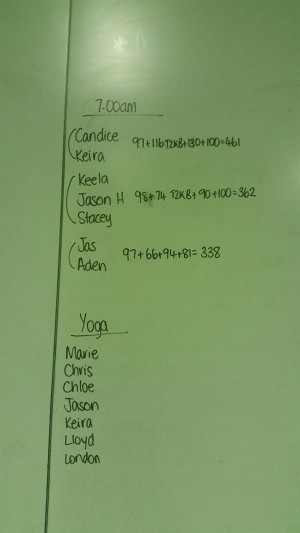 7.00am
Candice
Keira 97+116 T2KB+130+100=461
Keela
Jason H 98+74 T2KB+90+100=362
Stacey
Jas
Aden 97+66+94+81=338
Yoga
Marie
Chris
Chloe
Jason
Keira
Lloyd
London